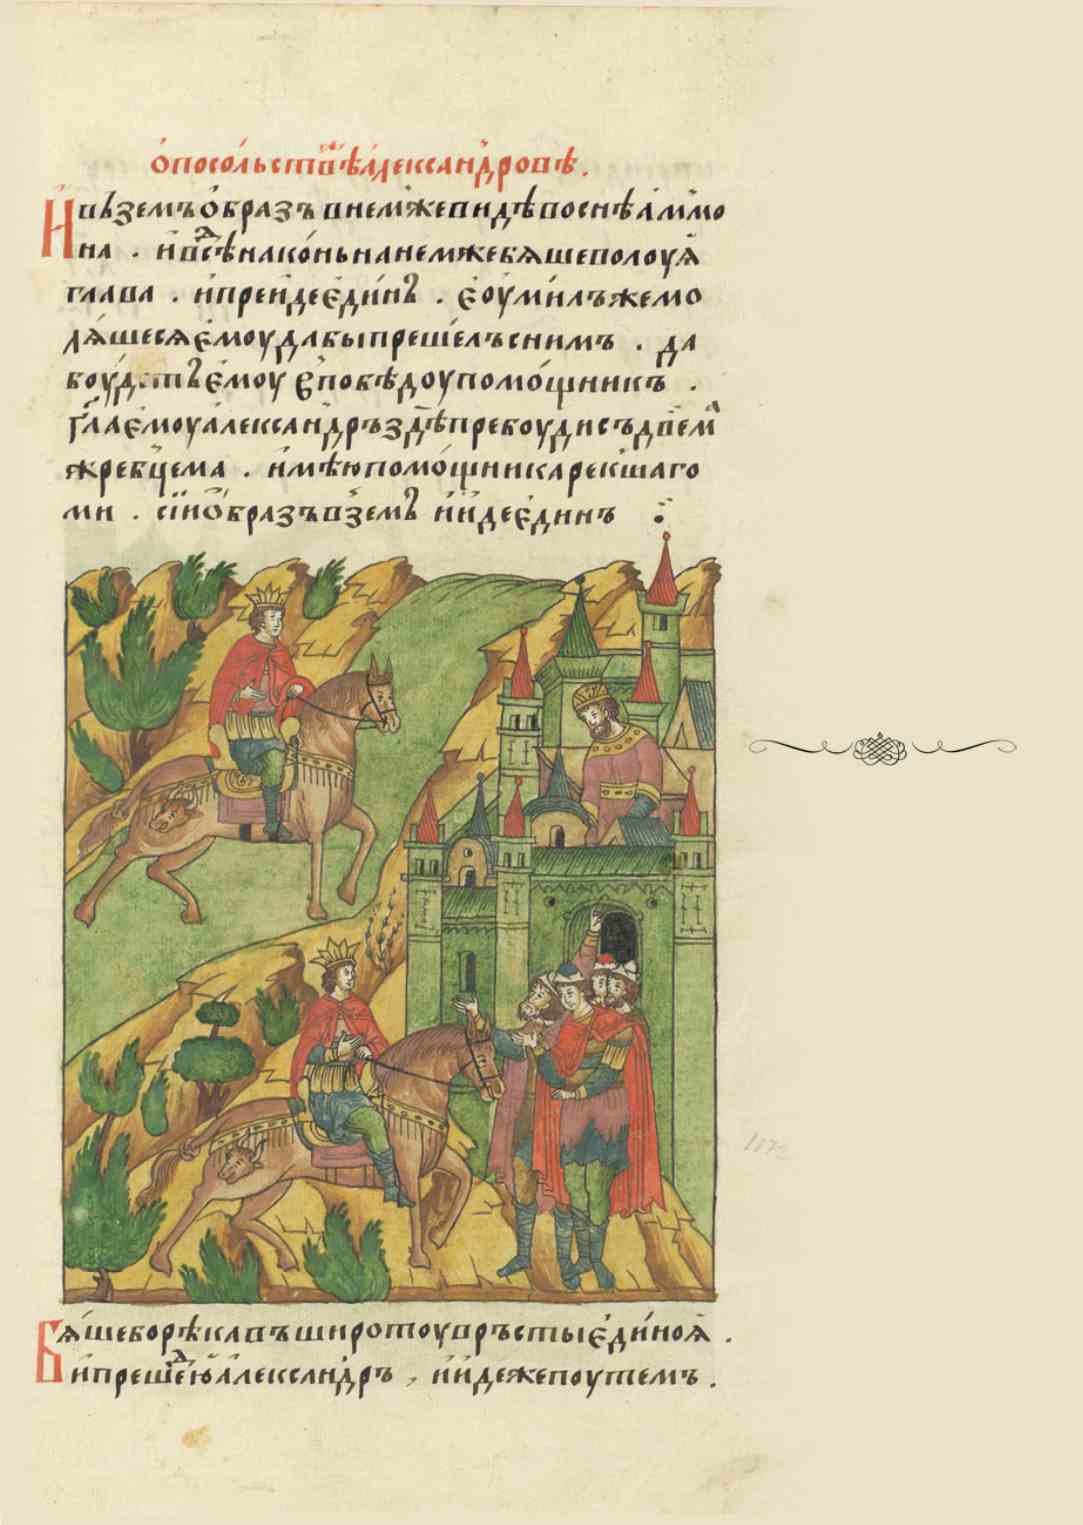 ѽпосо́льств҃ѣа҆леѯандровѣ.
И҆възе́мъѻ҆́бразъвнемжевидѣвоснѣа҆ммо
на . и҆всѣ́днако́ньнанемжебѧшеволоуѧ
глава . и҆пре́идеє҆ди́нъ . є҆оумилъжемо
лѧ́шесѧє҆моудабыпреше́лъснимъ . да
боудетъє҆моу єпобѣдоупомо́щникъ .
гл҃ае҆моуа҆леѯа́ндръздѣ́превоудисъдвѣма
жребцема . и҆мѣюпомо́щникарекшаго
ми . сі́иѻ҆бразъвзе́мъ и҆и҆дее҆ди́нъ :
Бѧ́шеборѣкавъширотоувръстыє҆ди́ноѧ .
и҆преше́дюа҆леѯандръ , и҆и҆дежепоутемъ .
1173